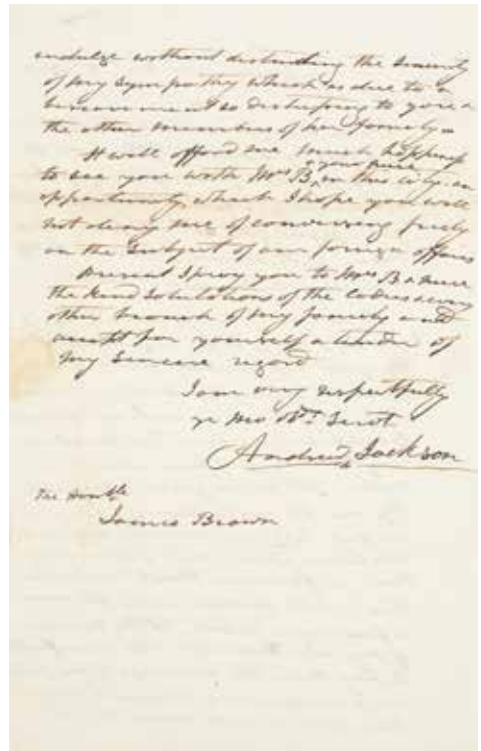 indulge without distending the sincerity
of my sympathy which is due to a
bereavement so distressing to you &
the other members of her family—
It will afford me much happiness
to see you with Mrs B, & your niece in this city. an
opportunity which I hope you will
not deny me of conversing freely
on the subject of our foreign affairs
Present I pray you to Mrs B & niece
the kind salutations of the ladies & every
other branch of my family and
accept for yourself a tender of
my sincere regard
I am very respectfully
yr Mo Obt Servt
Andrew Jackson
The Honble
James Brown